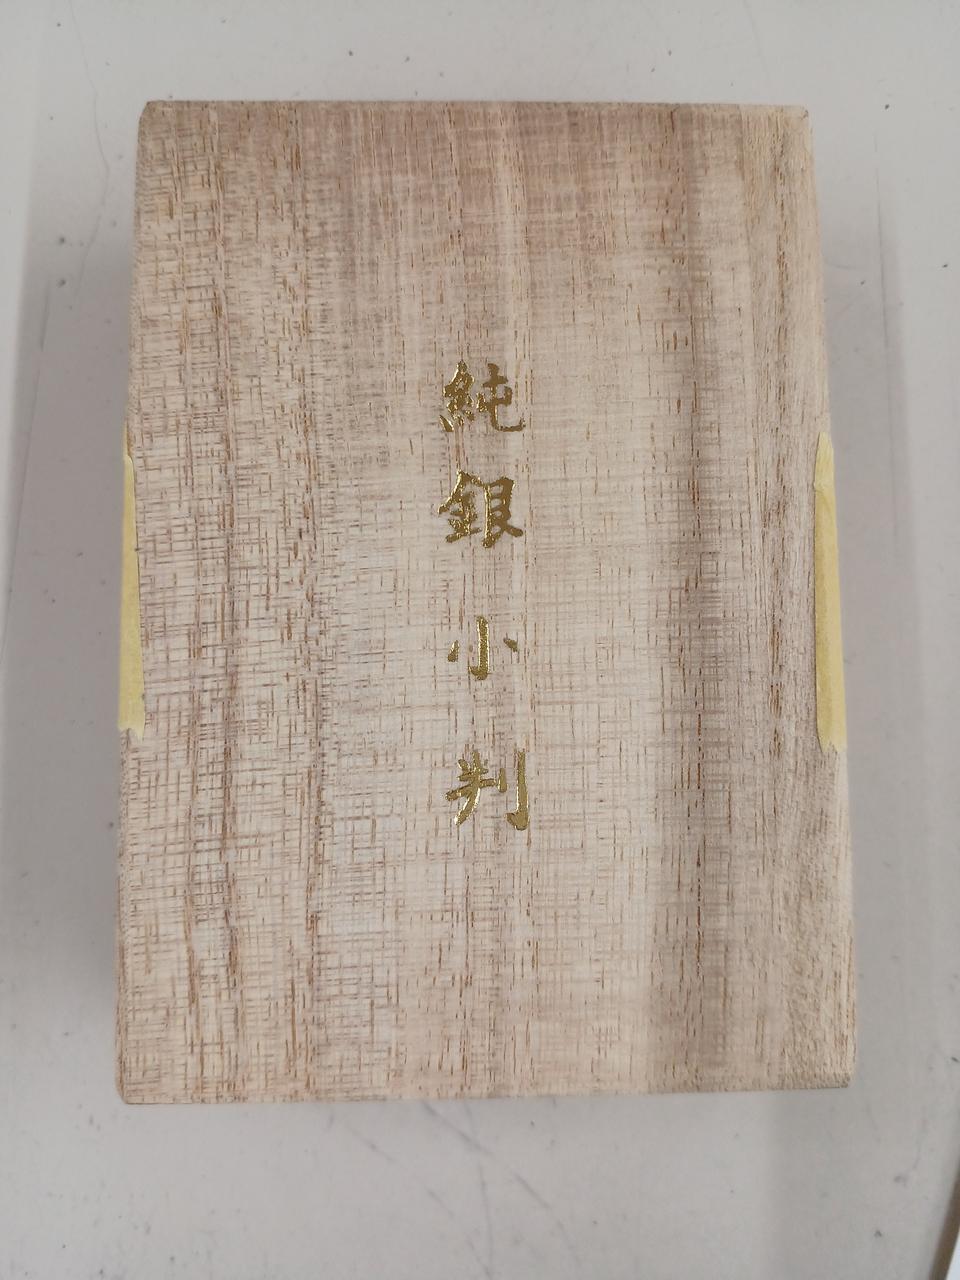 純銀小判